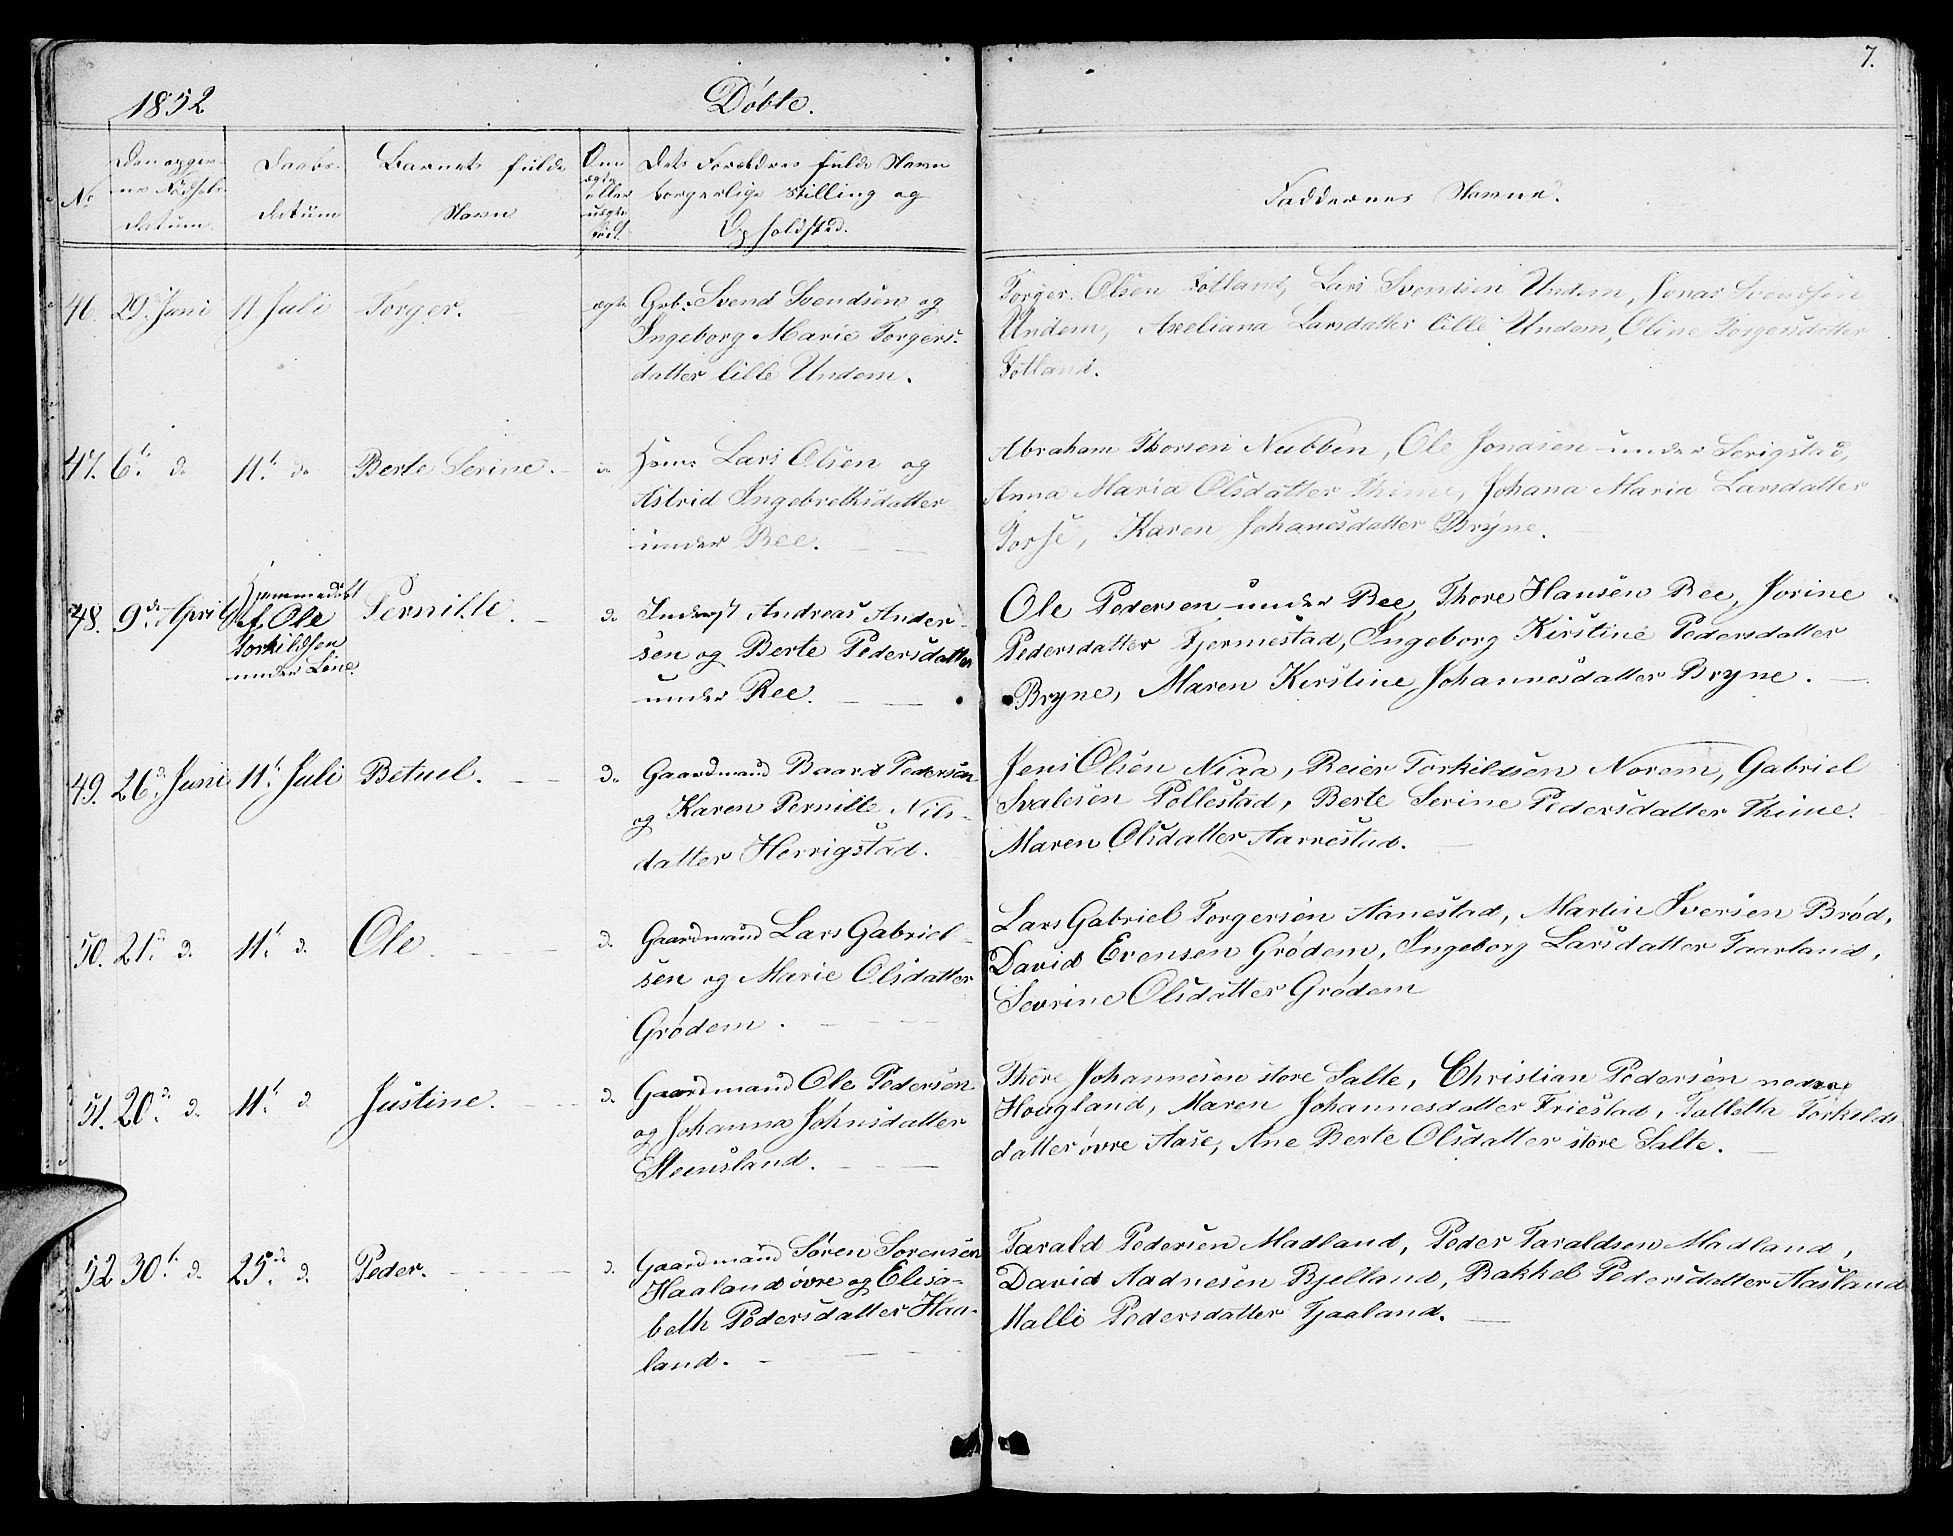 7.
1852
Døbte.
No
Den opgiv-
ne Fødsels-
datum.
Daabs-
datum
Barnets fulde
Navn
Om
ægte
eller
uægte
fød.
Dets Forældres fulde Navn
borgerlige Stilling og
Opholdsted.
Faddernes Navne.
46. 29. Juni 11 Juli Torger. ægte Grb. Svend Svendsen og
Ingeborg Marie Torgers-
datter lille Undem.
Torger Olsen Fotland, Lars Svendsen Undem, Jonas Svendsen
Undem, Axeliana Larsdatter lille Undem, Oline Torgersdatter
Fotland.
47. 6t. d. 11t. do Berte Serine. d. Huus. Lars Olsen og
Astrid Ingebrethsdatter
under Ree.
Abraham Thorsen Nubben, Ole Jonasen under Serigstad,
Anna Maria Olsdatter Thime, Johana Maria Larsdatter
Karen Johanesdatter Bryne.
48. 9de April Hjemmedøbt
af Ole
Torkildsen
under Line.
Pernille. d. Inderst Andreas Ander-
sen og Berte Pedersdatter
under Ree.
Ole Pedersen under Ree, Thore Hansen Ree, Jorine
Pedersdatter Tjermestad, Ingeborg Kirstine Pedersdatter
Bryne, Maren Kirstine Johannesdatter Bryne.
49. 26d. Juni 11t. Juli Betuel. d. Gaardmand Baard Pedersen
og Karen Pernille Nils-
datter Herrigstad.
Jens Olsen Niaa, Reier Torkildsen Norem, Gabriel
Svalesen Pollestad, Berte Serine Pedersdatter Thime.
Maren Olsdatter Aarrestad.
50. 21d. d. 11t. d. Ole. d. Gaardmand Lars Gabriel-
sen og Marie Olsdatter
Grødem.
Lars Gabriel Torgersen Aanestad, Martin Iversen Brød,
David Evensen Grødem, Ingeborg Larsdatter Taarland,
Sevrine Olsdatter Grødem
51. 20d. d. 11t. d Justine. d. Gaardmand Ole Pedersen
og Johanna Johnsdatter
Steensland.
Thore Johannesen store Salte, Christian Pedersen nedre
Hougland, Maren Johannesdatter Friestad, Talleth Torkilds-
datter øvre Aase, Ane Berte Olsdatter store Salte.
52 30t. d. 25d. d. Peder. d. Gaardmand Søren Sorensen
Haaland øvre og Elisa-
beth Pedersdatter Haa-
land.
Tarald Pedersen Madland, Peder Taraldsen Madland,
David Aadnesen Bjelland, Rakkel Pedersdatter Aasland
Malli Pedersdatter Tjaaland.